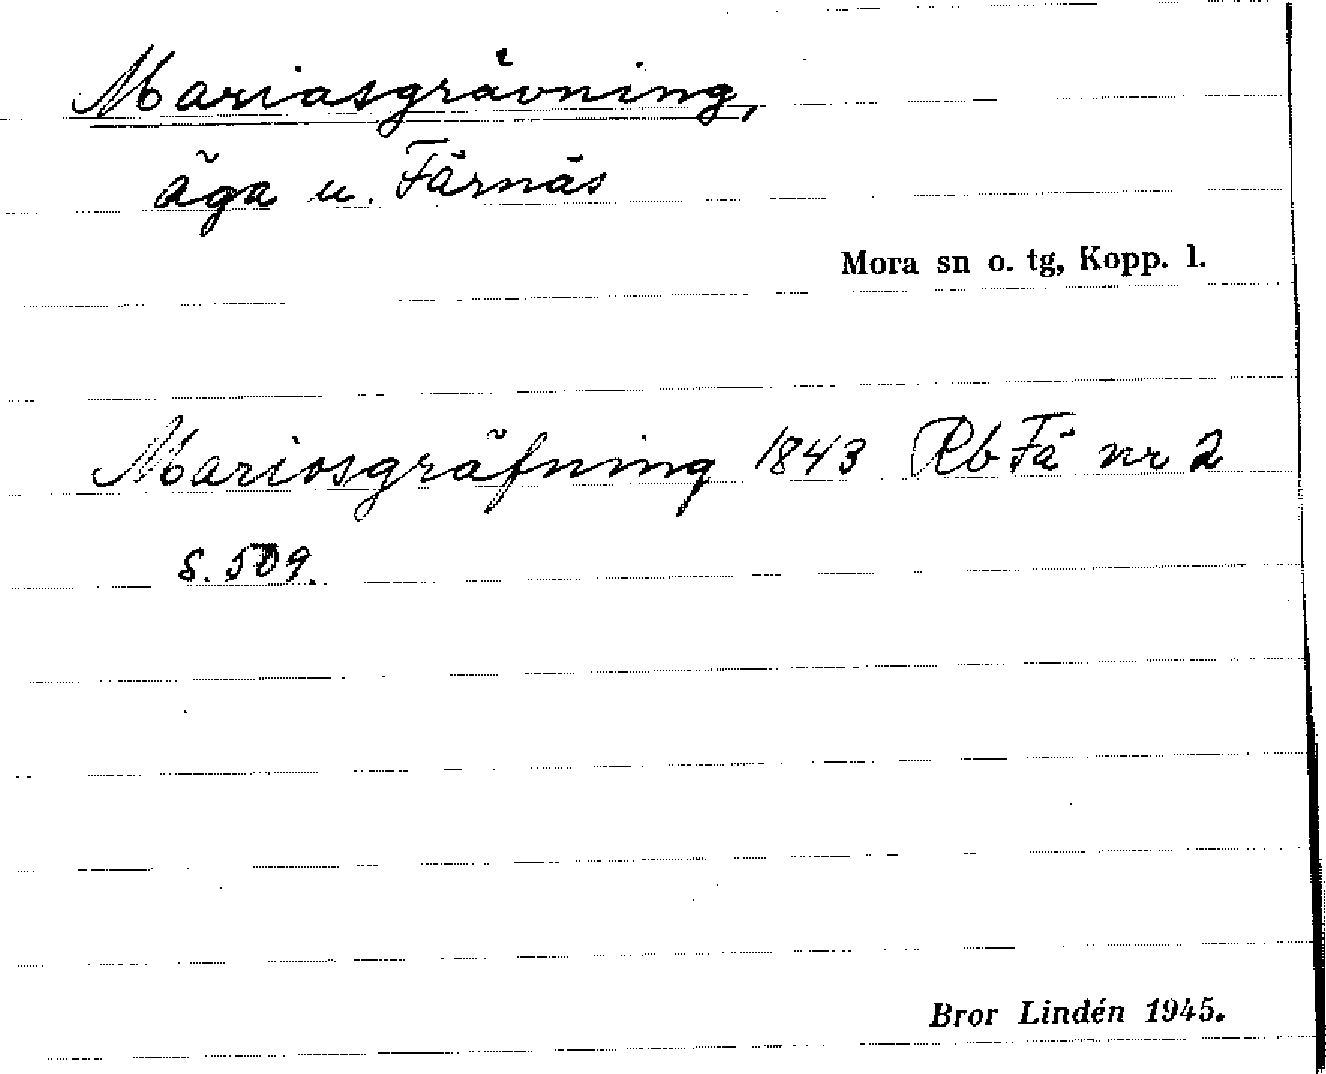 Mariasgrävning,
äga u. Färnäs
Mora sn o. tg, Kopp. l.
Mariosgräfning 1843 Rb Fä nr 2
s. 509.
Bror Lindén 1945.